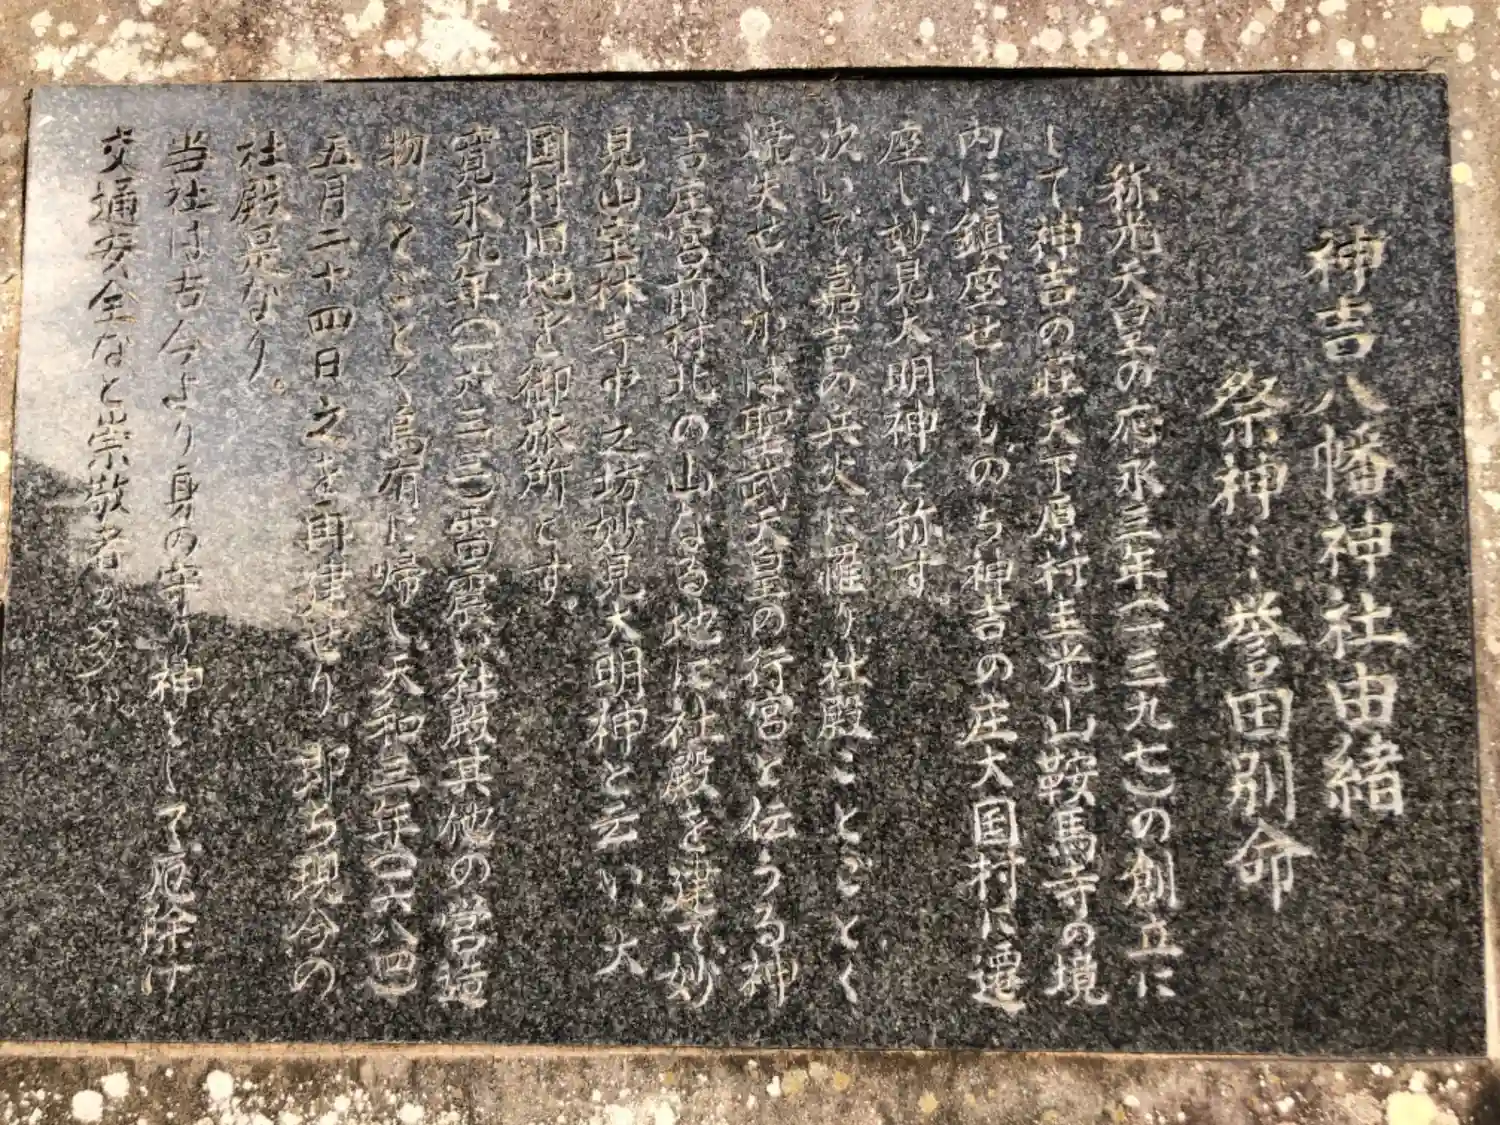 神吉八幡神社由緒
祭神…誉田別命
称光天皇の応永三年(一三九七)の創立に
して神吉の荘天下原村圭光山鞍馬寺の境
内に鎮座せしものち神吉の庄大国村に遷
座し妙見大明神と称す
次いで嘉吉の兵火に罹り社殿ことごとく
焼失せしかば聖武天皇の行宮と伝うる神
吉庄宮前村北の山なる地に社殿を建て妙
見山宝林寺中之坊妙見大明神と云い大
国村旧地を御旅所とす
寛永九年(一六三二)雷震い社殿其他の営造
物ことごとく烏有に帰し天和三年(一六八四)
五月二十四日之を再建せり 即ち現今の
社殿是なり。
当社は古今より身の守り神として厄除け
交通安全など崇敬者が多い。